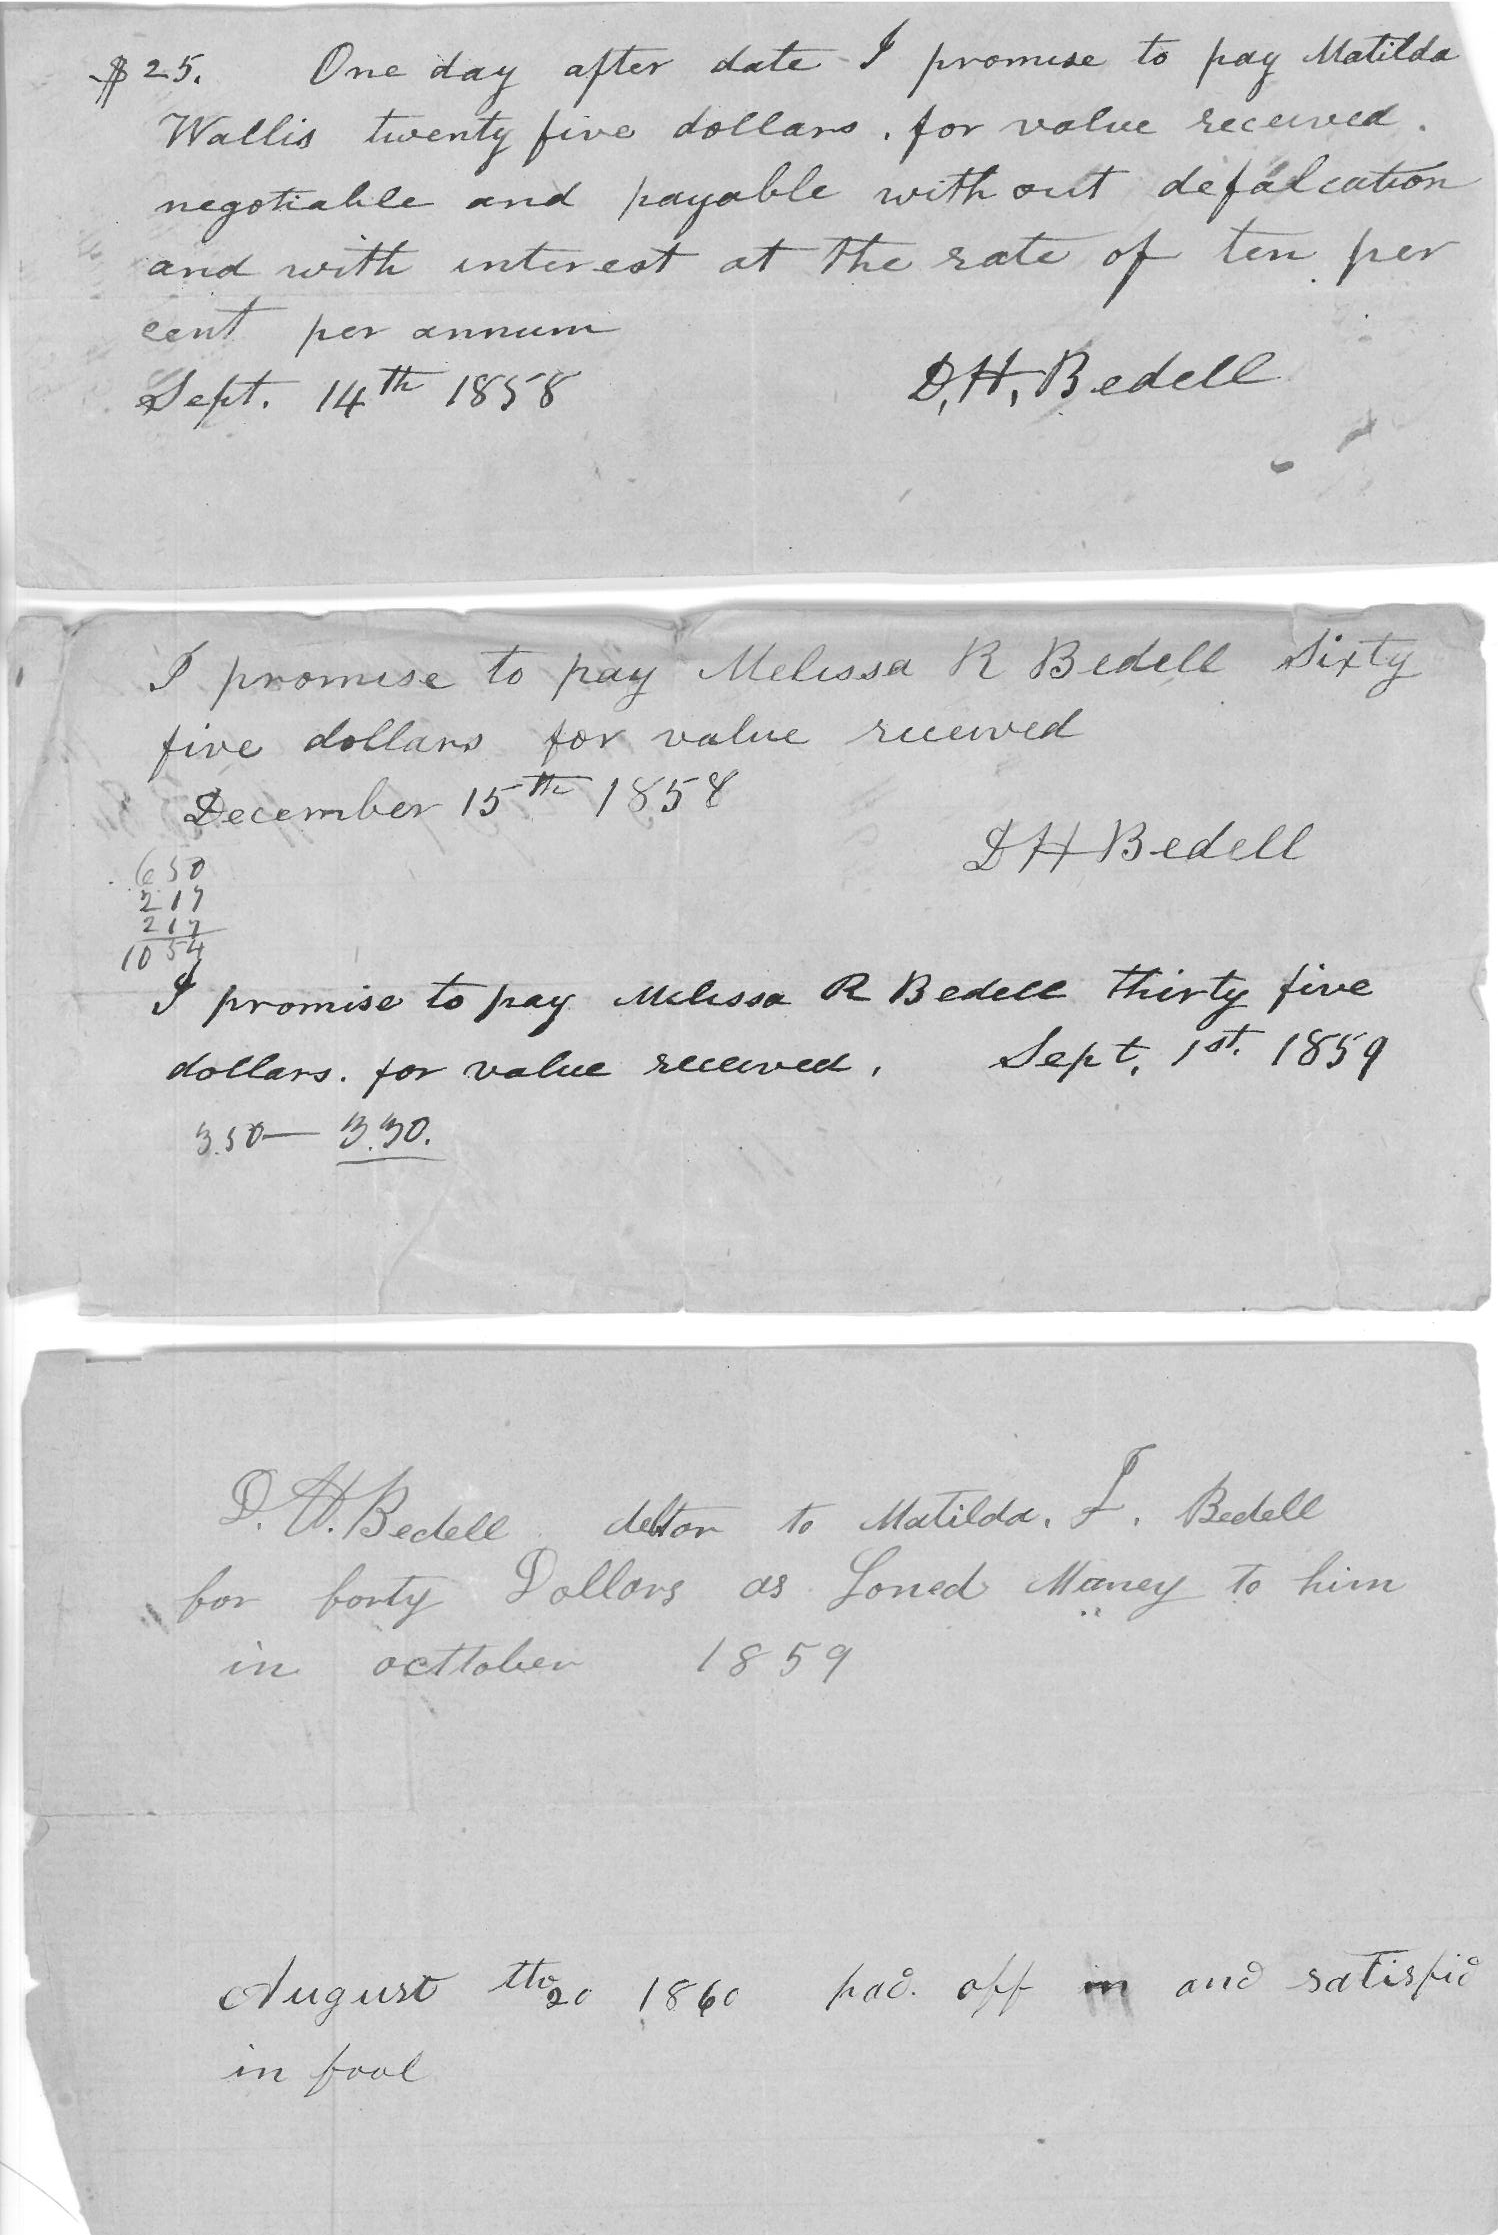 $25. One day after date I promise to pay Matilda
Wallis twenty five dollars. for value received.
negotiable and payable with out defalcation
and with interest at the rate of ten per
cent per annum
Sept. 14th 1858 D. H. Bedell
I promise to pay Melissa R Bedell Sixty
five dollars for value received
December 15th 1858
D H Bedell
650
217
217
1054
I promise to pay Melissa R Bedell thirty five
dollars. for value received. Sept. 1st. 1859
3.50— 3.30.
D. H. Bedell debtor to Matilda. F. Bedell
for forty Dollars as Loned Maney to him
in octtober 1859
August th 20 1860 pad. off in and satisfid
in fool